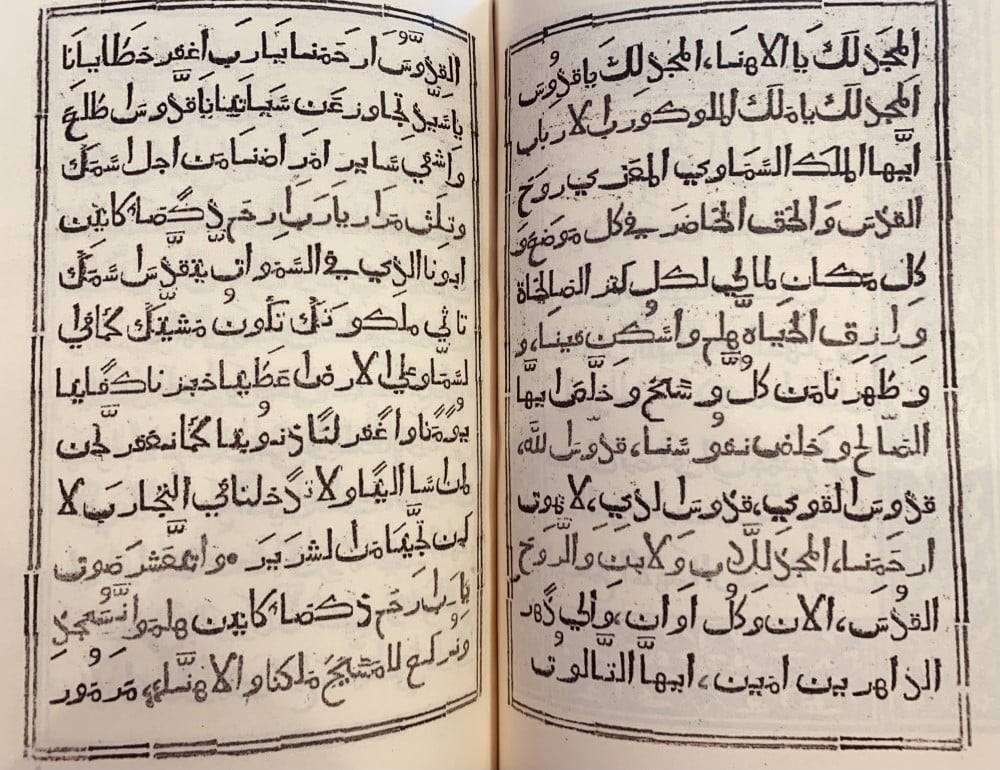 المجد لك يا الاهنا، المجد لك يا قدوس
المجد لك يا ملك الملوك ورب الارباب
ايها الملك السماوي المعزي روح
القدس والحق الحاضر في كل موضع و
كل مكان لمالي لكل كنز الصالحاة
ورازق الحياه هلم واسكن فينا، و
وطهرنا من كل وسخ وخلص ايها
الصالح وخلص نفوسنا، قدوس الله،
قدوس القوي، قدوس الذي، لا يموت
ارحمنا، المجد للاب ولابن والروح
القدس، الان وكل اوان، والي دهر
الداهرين امين، ايها التالوت
القدوس ارحمنا يا رب اغفر خطايانا
يا سيد تجاوز عن سياتنا يا قدوس اطلع
واشفي ساير امراضنا من اجل اسمك
وتلث مرار يا رب ارحم ذكصا كانين
ابونا الذي في السموات يتقدس اسمك
تاتي ملكوتك تكون مشيتك كما في
لسما وعلي الارض اعطينا خبزنا كفافنا
يومنا واغفر لنا ذنوبنا كما نغفر لمن
لمن اسا الينا ولا تدخلنا في التجارب لا
كن نجينا من الشرير
يا رب ارحم ذكصا كانين هلموا نسجد
ونركع للمسيح ملكنا والاهنا، مزمور